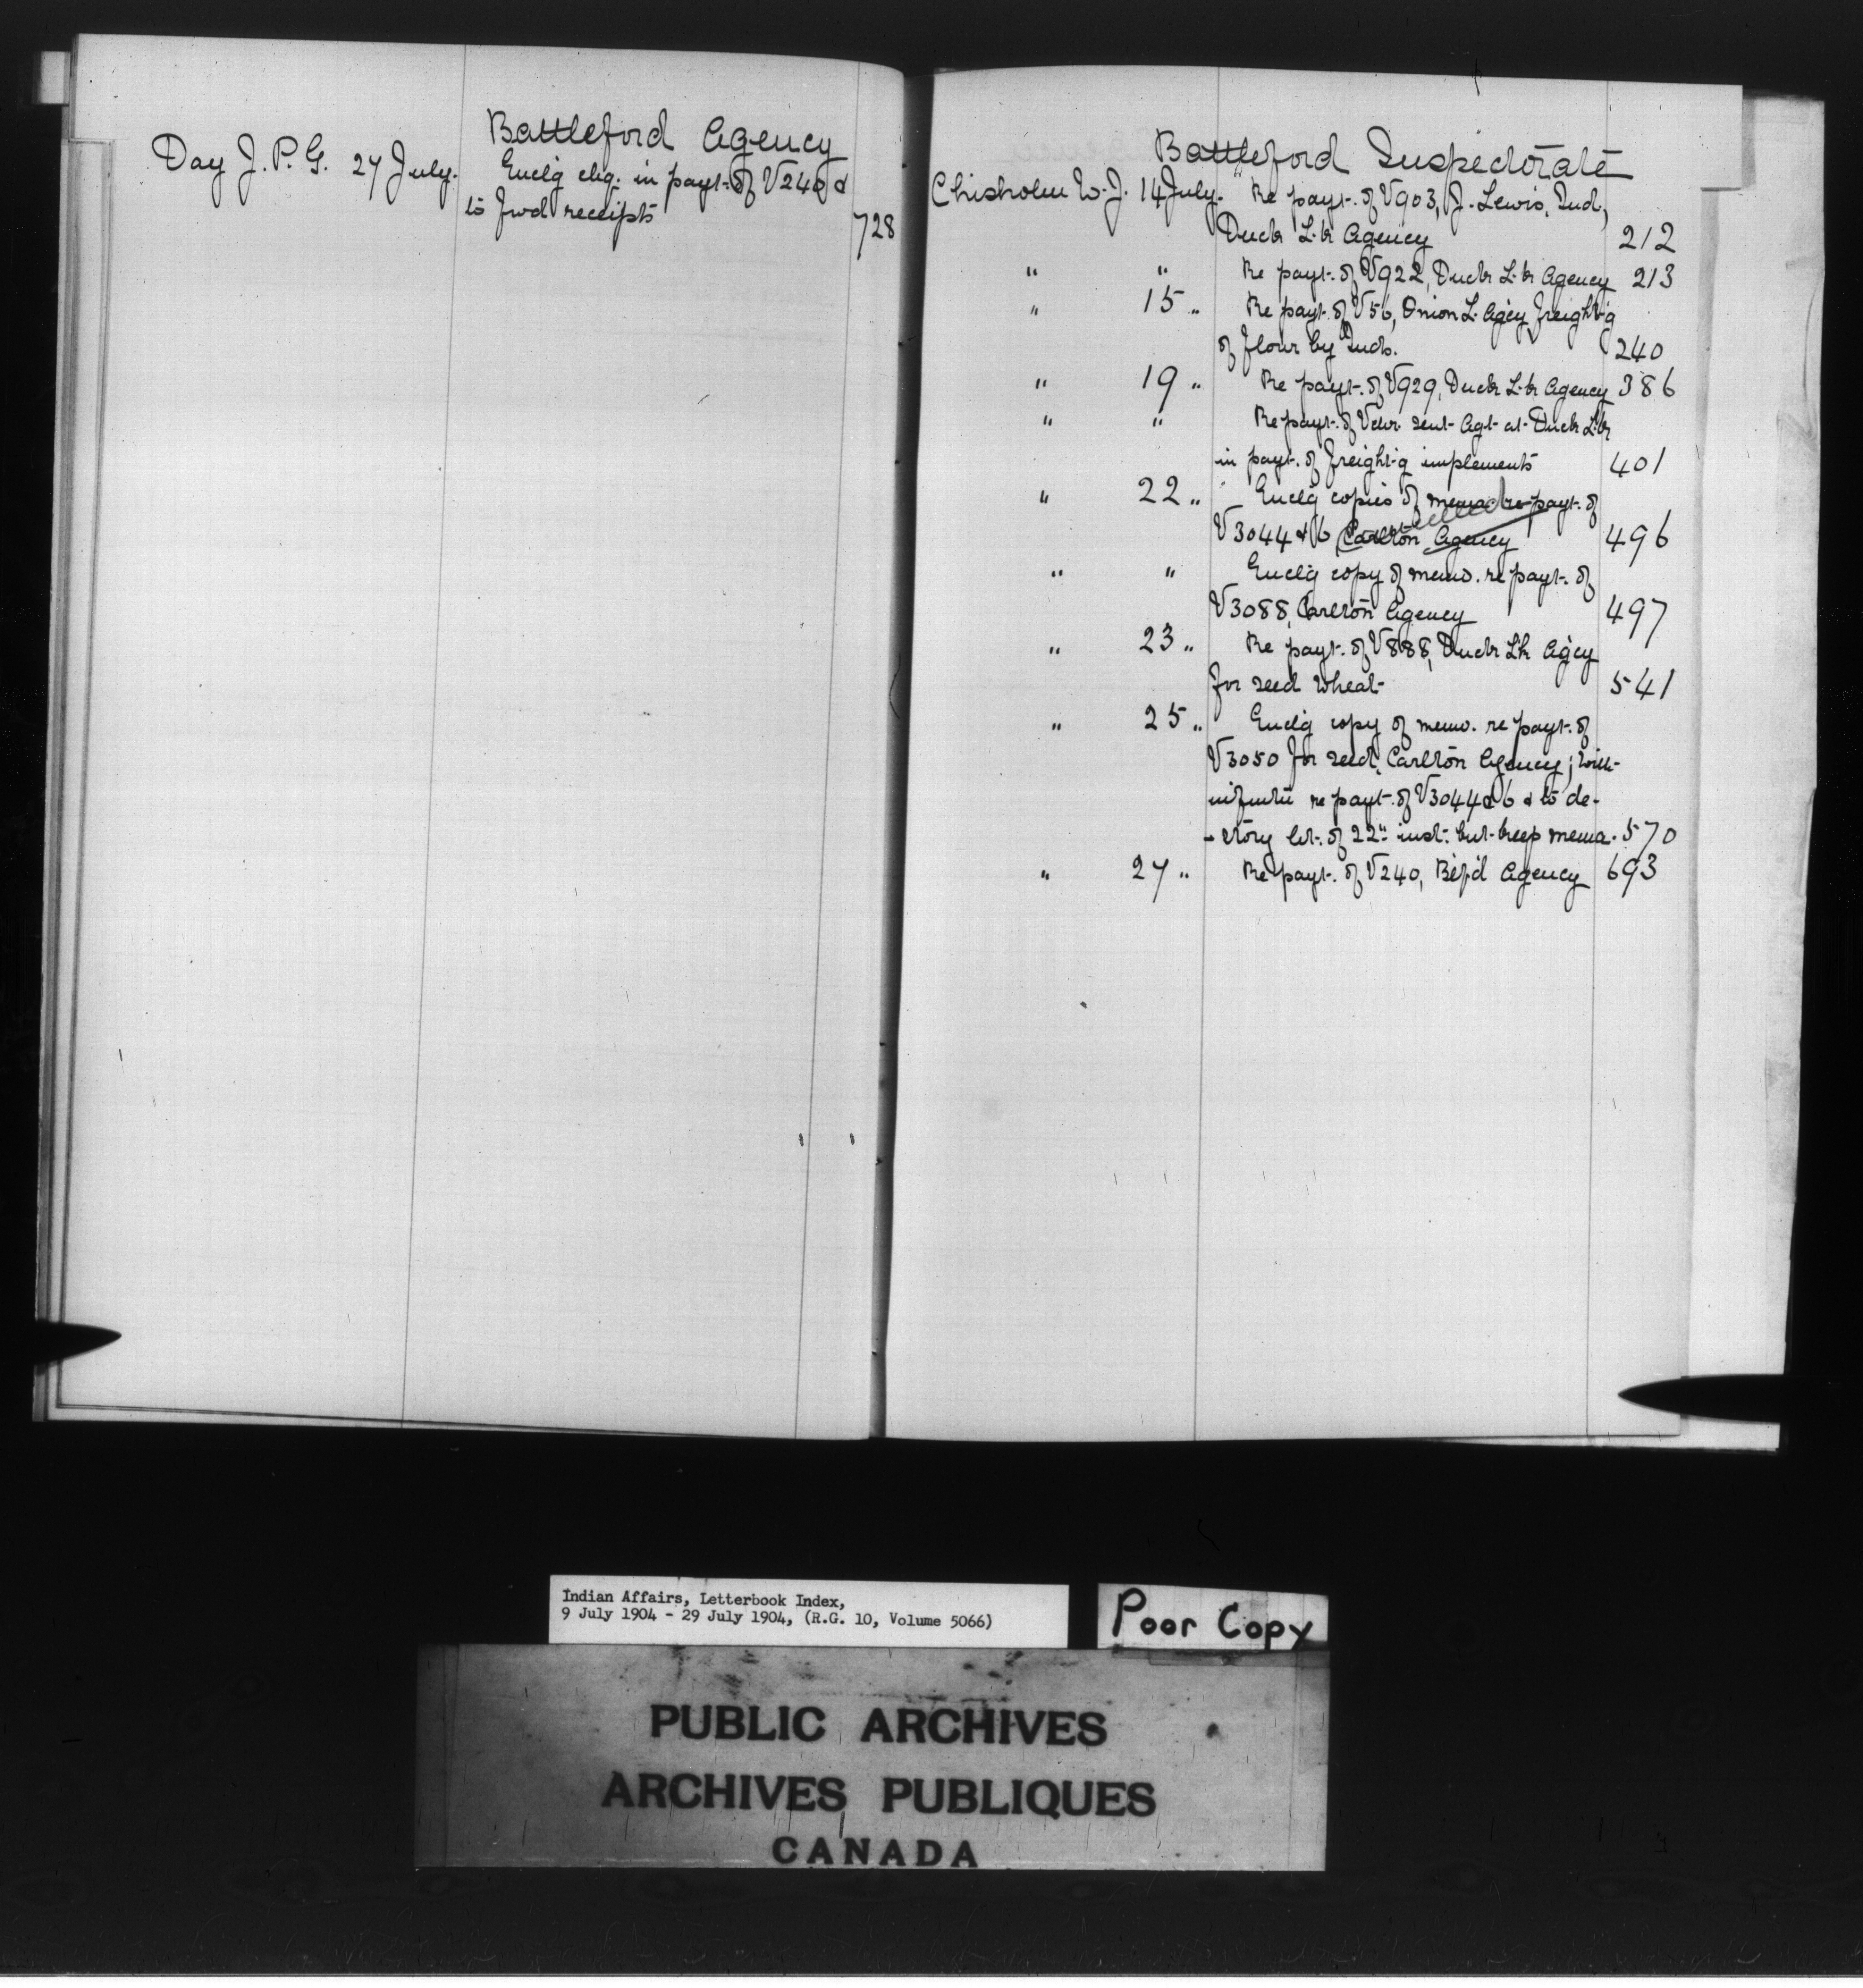 Battleford Agency
Day J. P. G. 27 July. Enclg chq. in payt. of V240 &
to fwd receipts 728
Battleford Inspectorate
Chisholm W. J. 14 July. Re payt. of V903, J. Lewis, Ind.,
Duck L'k Agency 212
" " Re payt. of V922, Duck L'k Agency 213
" 15 " Re payt. of V56, Onion L. Agcy freight'g
of flour by Inds. 240
" 19 " Re payt. of V929, Duck L'k Agency 386
" " Re payt. of Vchr sent Agt at Duck L'k
in payt. of freight'g implements 401
" 22 " Enclg copies of mema. re payt. of
V3044 & 6 Carlton Agency 496
" " Enclg copy of memo. re payt. of
V3088, Carlton Agency 497
" 23 " Re payt. of V888, Duck L'k Agcy
for seed wheat 541
" 25 " Enclg copy of memo. re payt. of
V3050 for seed, Carlton Agency; will
re payt. of V3044 & 6 & to de-
-stroy let. of 22" inst. but keep mema. 570
" 27 " Re payt. of V240, Bef'd Agency 693
Indian Affairs, Letterbook Index,
9 July 1904 - 29 July 1904, (R.G. 10, Volume 5066)
Poor Copy
PUBLIC ARCHIVES
ARCHIVES PUBLIQUES
CANADA